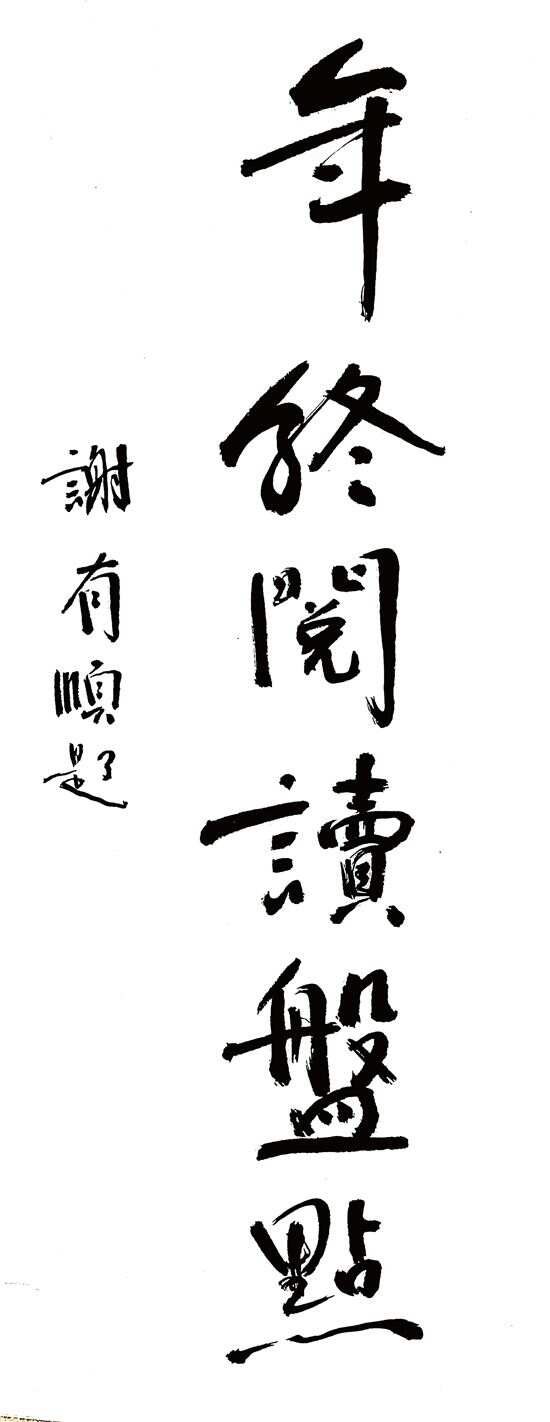 年終閱讀盤點
謝有順題